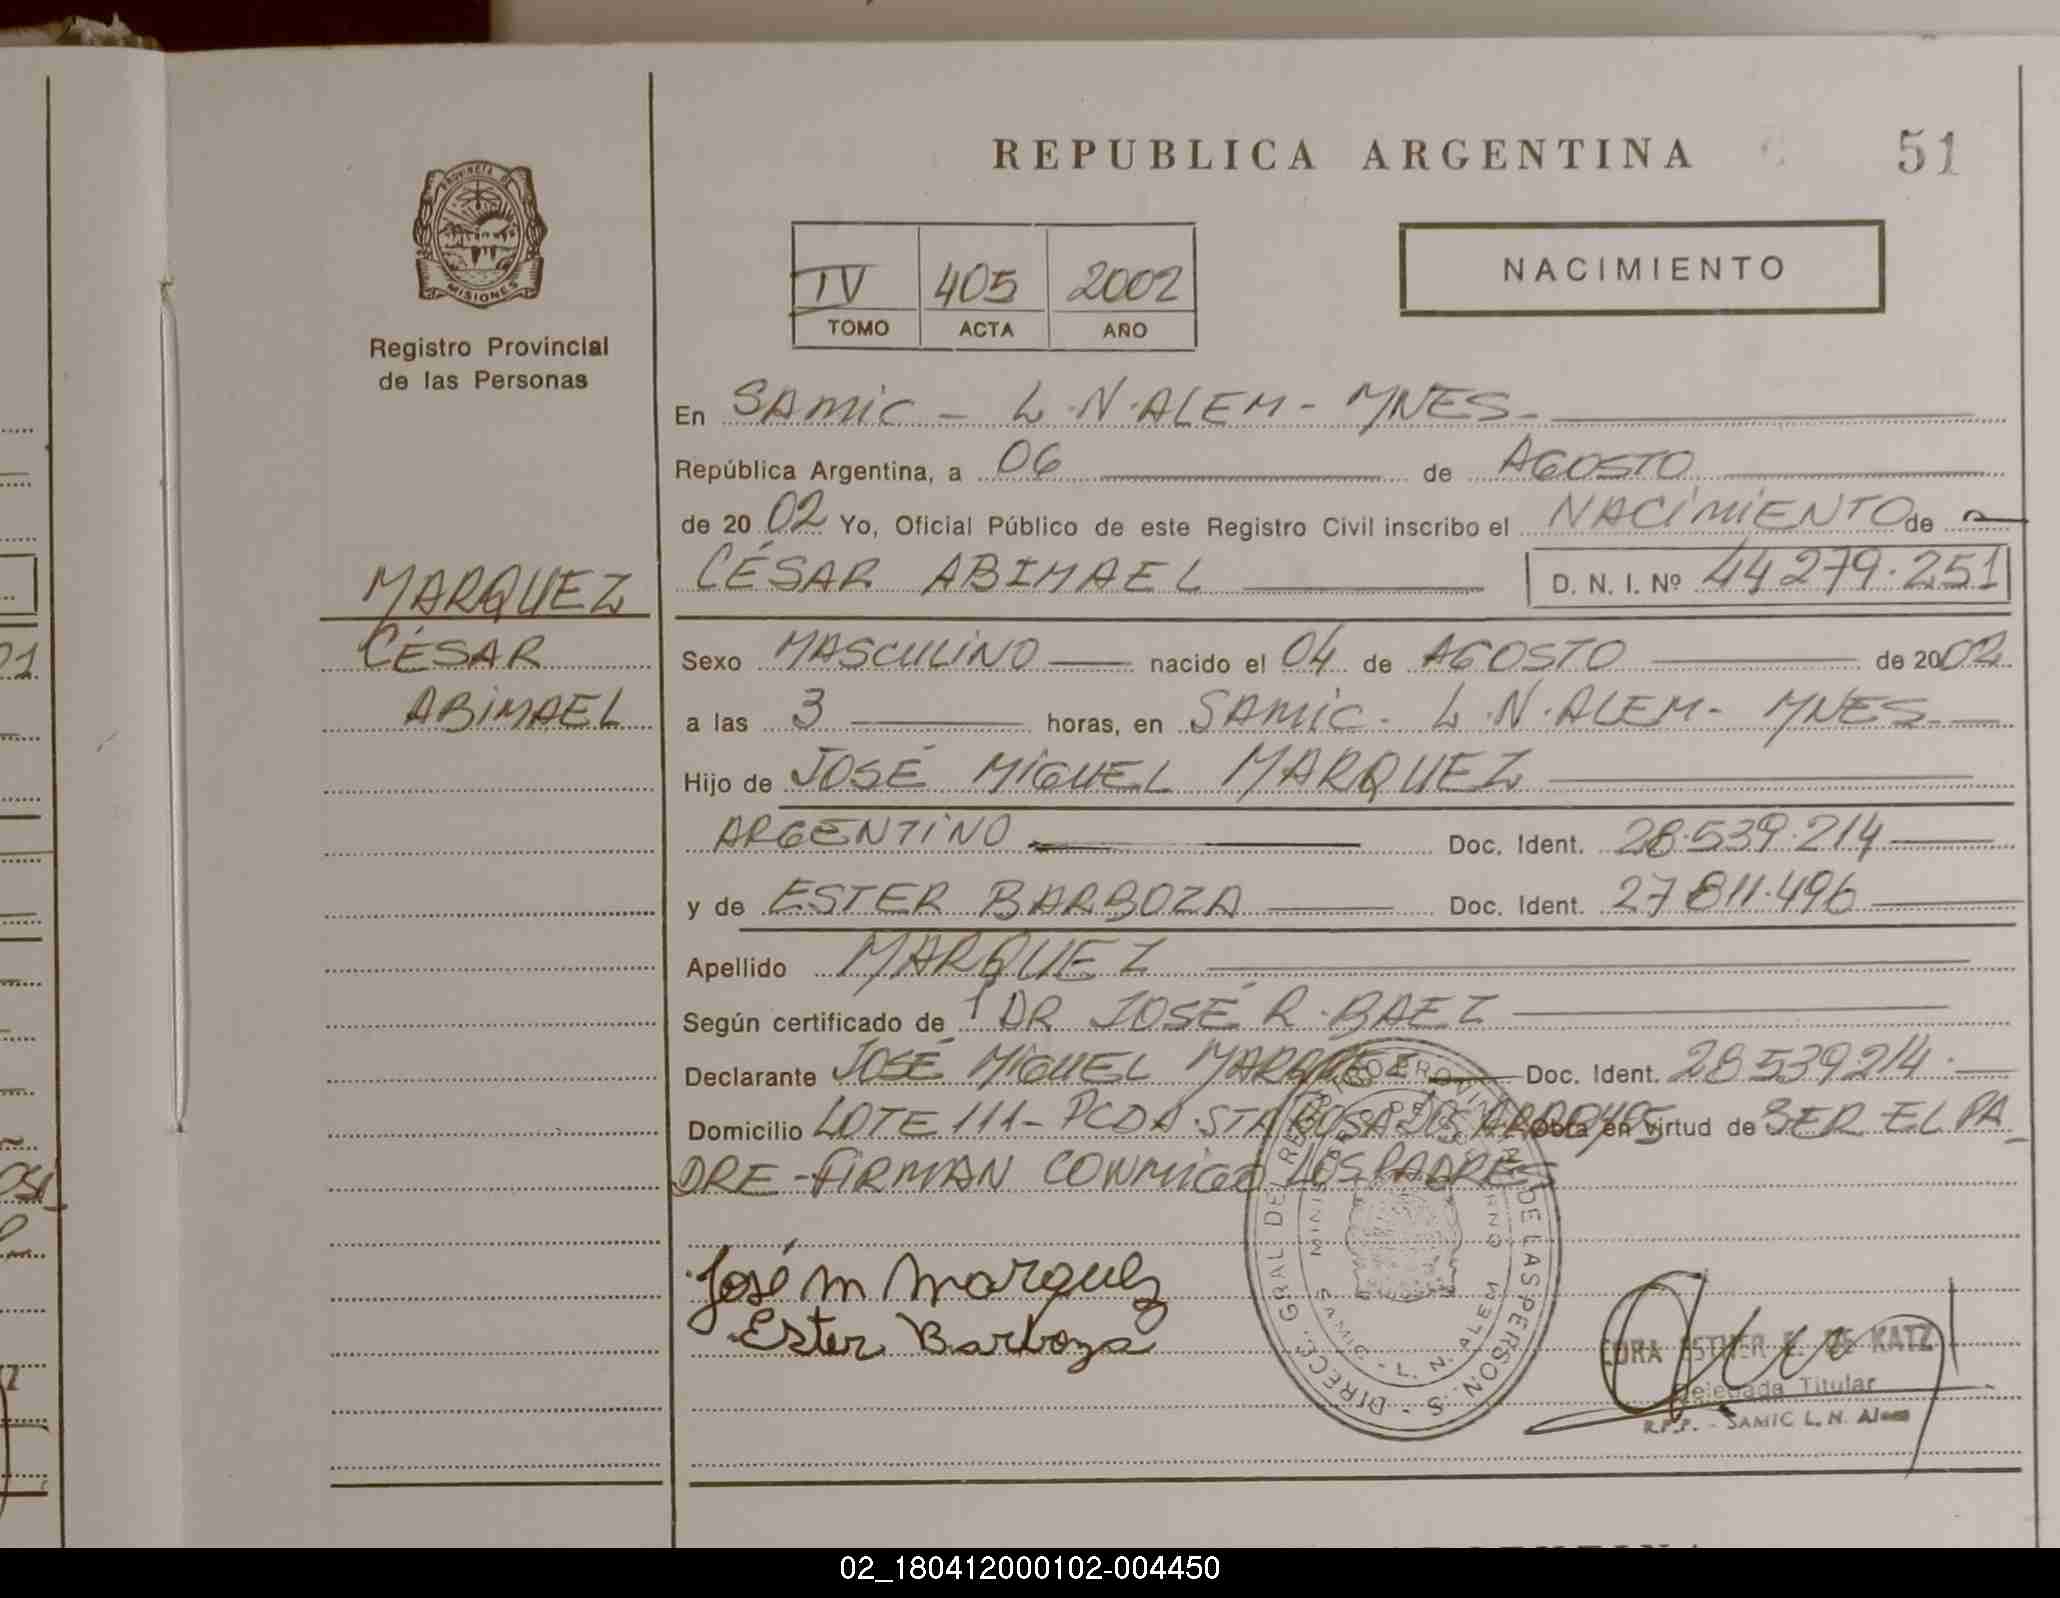 REPUBLICA ARGENTINA
51
PROVINCIA DE
MISIONES
Registro Provincial
de las Personas
IV 405 2002
TOMO ACTA AÑO
NACIMIENTO
En SAMIC - L.N.ALEM - MNES -
República Argentina, a 06 de AGOSTO
de 2002 Yo, Oficial Público de este Registro Civil inscribo el NACIMIENTO de
CÉSAR ABIMAEL D. N. I. Nº 44279.251
MARQUEZ
CÉSAR
ABIMAEL
Sexo MASCULINO nacido el 04 de AGOSTO de 2002
a las 3 horas, en SAMIC - L.N.ALEM - MNES -
Hijo de JOSÉ MIGUEL MARQUEZ
ARGENTINO Doc. Ident. 28.539.214
y de ESTER BARBOZA Doc. Ident. 27811.496
Apellido MARQUEZ
Según certificado de DR JOSÉ R. BAEZ
Declarante JOSÉ MIGUEL MARQUEZ Doc. Ident. 28539214
Domicilio LOTE 111 - PCDA STA ROSA DOS ARROYOS Obra en virtud de SER EL PA
DRE - FIRMAN CONMIGO LOS PADRES
José M Marquez
Ester Barboza
DIREC. GRAL DEL DE LAS PERSON.S
SAMIC - L. N. ALEM
ESTHER E. DE KATZ
Delegada Titular
R.P.P. - SAMIC L. N. Alem
02_180412000102-004450